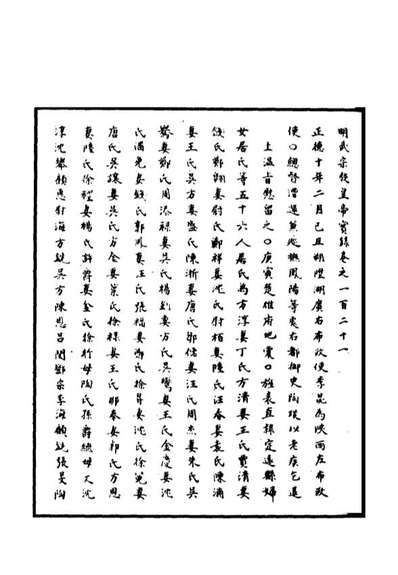 明武宗毅皇帝實錄卷之一百二十一
正德十年二月己丑朔陞湖廣右布政使李昆為陝西左布政
使〇總督漕運兼巡撫鳳陽等處右都御史陶琰以老疾乞退
上溫旨慰留之〇庚寅楚雄府地震〇旌表直隸定遠縣婦
女居氏等五十六人居氏為方淳妻丁氏方清妻王氏賈清妻
饒氏鄭翊妻尉氏鄭祥妻沈氏尉栢妻陸氏汪春妻袁氏陳浦
妻王氏吳方妻盛氏陳浙妻唐氏鄧儒妻汪氏周杰妻朱氏吳
妻鄭氏周添祿妻吳氏楊釗妻方氏吳鸞妻王氏金妻沈
氏馮妻錢氏郭鳳妻王氏張福妻鄧氏徐昇妻沈氏徐寬妻
唐氏吳讓妻吳氏方全妻葉氏徐祿妻王氏春妻郭氏方恩
妻陸氏徐妻楊氏許舜妻金氏徐行母陶氏孫爵母沈
淳沈鑾顧恩尉海方銳吳方陳恩呂閏鄧宗李海顧銳張旻陶